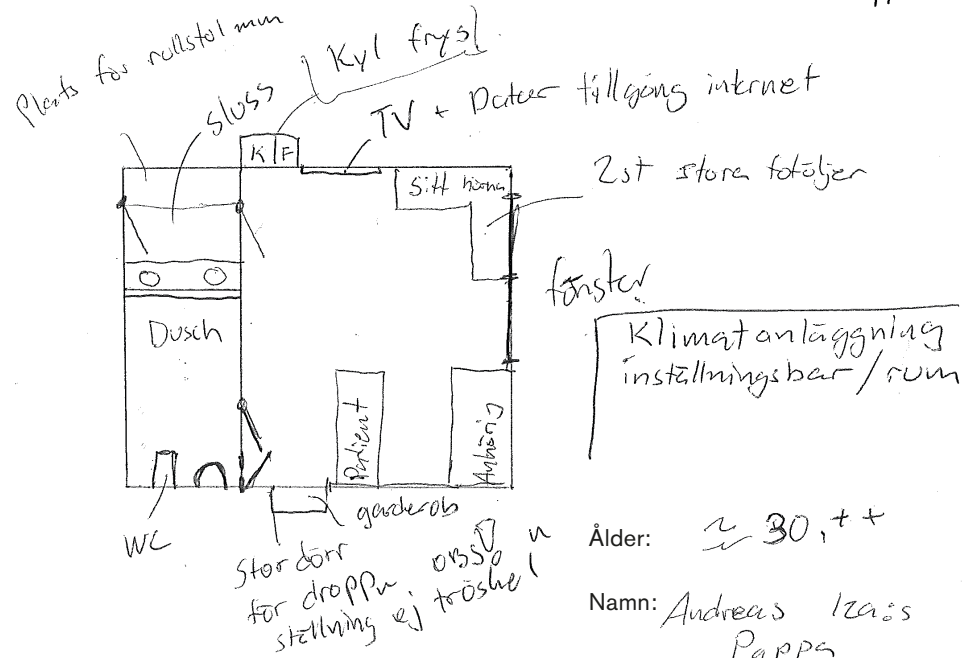 Plats för rullstol mm
sluss
Kyl frys
TV + Dator tillgång internet
K F
Sitt hörna
2st stora fotöljer
fönster
Klimatanläggning
inställningsbar/rum
Dusch
Patient
Anhörig
WC
garderob
Stor dörr
för dropp
ställning ej tröskel
OBS
Ålder: ≈ 30,++
Namn: Andreas
Pappa